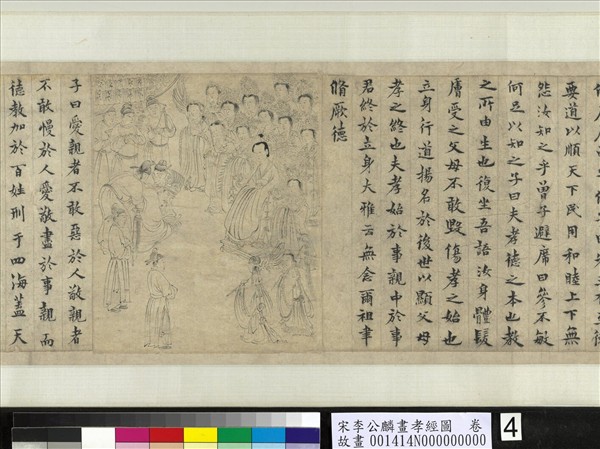 要道以順天下民用和睦上下無
怨汝知之乎曾子避席曰參不敏
何足以知之子曰夫孝德之本也教
之所由生也復坐吾語汝身體髮
膚受之父母不敢毀傷孝之始也
立身行道揚名於後世以顯父母
孝之終也夫孝始於事親中於事
君終於立身大雅云無念爾祖聿
脩厥德
子曰愛親者不敢惡於人敬親者
不敢慢於人愛敬盡於事親而
德教加於百姓刑于四海蓋天
宋李公麟畫孝經圖 卷
故畫 001414N000000000
4